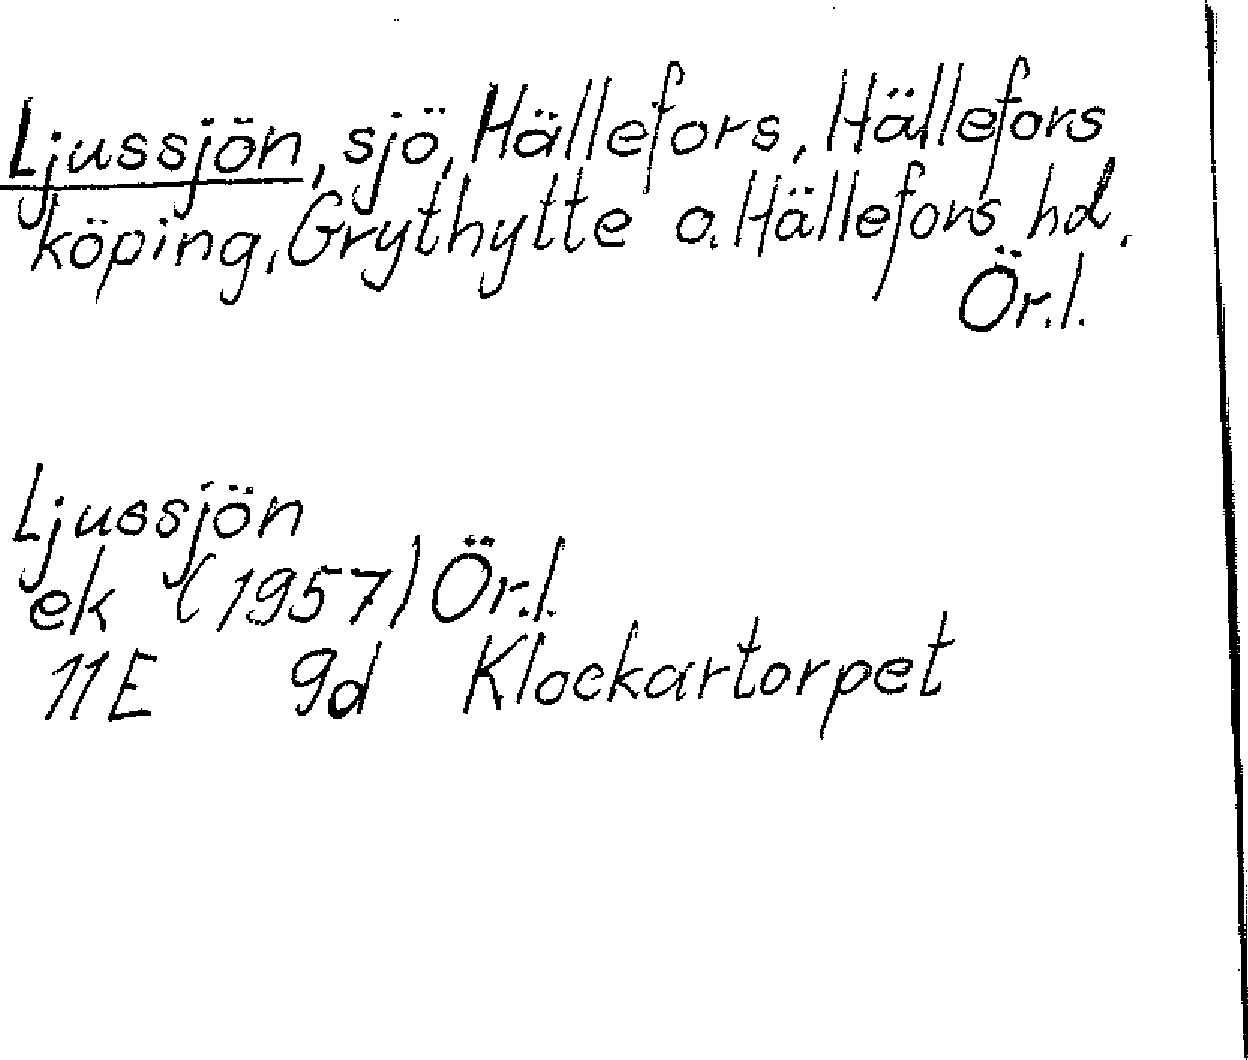 Ljussjön, sjö, Hällefors, Hällefors
köping, Grythytte o. Hällefors hd.
Ör.l.
Ljussjön
ek (1957) Ör.l.
11E 9d Klockartorpet